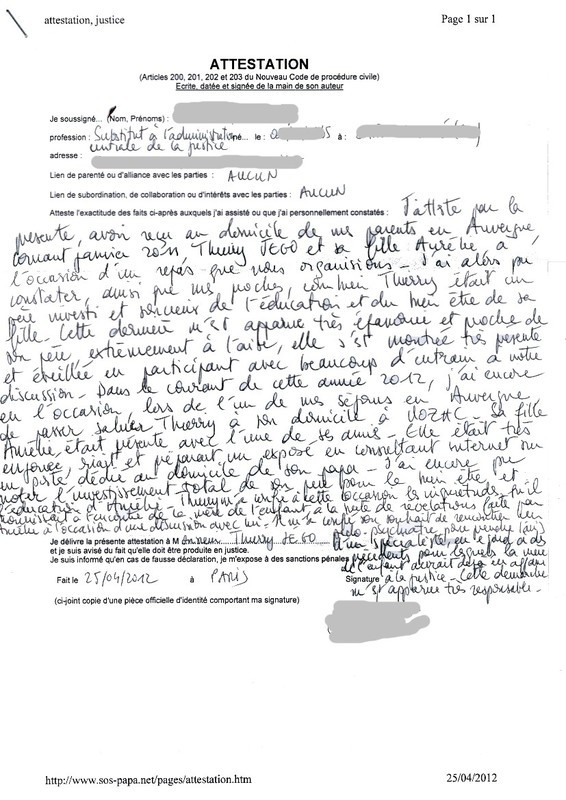 attestation, justice
Page 1 sur 1
ATTESTATION
(Articles 200, 201, 202 et 203 du Nouveau Code de procédure civile)
Ecrite, datée et signée de la main de son auteur
Je soussigné... (Nom, Prénoms) :
profession : Substitut à l'administration le : 5 à :
centrale de la justice
adresse :
Lien de parenté ou d'alliance avec les parties : AUCUN
Lien de subordination, de collaboration ou d'intérêts avec les parties : AUCUN
Atteste l'exactitude des faits ci-après auxquels j'ai assisté ou que j'ai personnellement constatés : J'atteste par la
présente, avoir reçu au domicile de mes parents en Auvergne,
courant janvier 2011 Thierry TEGO et sa fille Amélie à
l'occasion d'un repas que nous organisions - J'ai alors pu
constater, ainsi que mes proches, combien Thierry était un
père investi et soucieux de l'éducation et du bien être de sa
fille - Cette dernière m'est apparue très épanouie et proche de
son père, extrêmement à l'aise, elle s'est montrée très présente
et éveillée en participant avec beaucoup d'entrain à notre
discussion - Dans le courant de cette année 2012, j'ai encore
eu l'occasion, lors de l'un de mes séjours en Auvergne
de passer saluer Thierry à son domicile à - Sa fille
Amélie était présente avec l'une de ses amies - Elle était très
enjouée, riait et préparait un exposé en consultant internet sur
un poste dédié au domicile de son papa - J'ai encore pu
noter l'investissement total de son père pour le bien être et
l'éducation d'Amélie. Thierry m'a confié à cette occasion les inquiétudes qu'il
nourrissait à l'encontre de la mère de l'enfant à la suite de révélations faite par
Amélie à l'occasion d'une discussion avec lui - Il m'a confié son souhait de rencontrer
Je délivre la présente attestation à Monsieur Thierry TEGO
et je suis avisé du fait qu'elle doit être produite en justice.
Je suis informé qu'en cas de fausse déclaration, je m'expose à des sanctions pénales
pédo-psychiatre, ou
un spécialiste,
précédents pour lesquels la mère
de l'enfant aurait déjà eu affaire
Fait le 25/04/2012 à PARIS
Signature à la justice - Cette démarche
m'est apparue très responsable -
(ci-joint copie d'une pièce officielle d'identité comportant ma signature)
http://www.sos-papa.net/pages/attestation.htm
25/04/2012